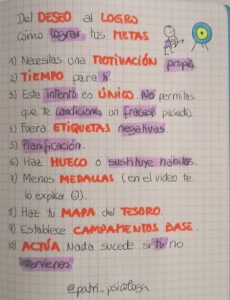 Del DESEO al LOGRO
Cómo lograr tus METAS
1) Necesitas una MOTIVACIÓN propia.
2) TIEMPO para ti.
3) Este intento es ÚNICO. No permitas
que te condicione un fracaso pasado.
4) Fuera ETIQUETAS negativas
5) Planificación.
6) Haz HUECO o sustituye hábitos.
7) Menos MEDALLAS (en el video te
lo explico ☺).
8) Haz tu MAPA del TESORO.
9) Establece CAMPAMENTOS BASE
10) ACTÚA. Nada sucede si tú no
intervienes
@patri_psicologa